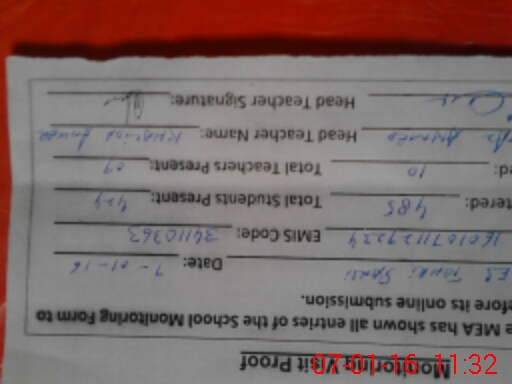 Monitoring Visit Proof
e MEA has shown all entries of the School Monitoring Form to
efore its online submission.
Date: 7-01-16
EMIS Code: 34110363
tered: 485 Total Students Present: 424
ed: 10 Total Teachers Present: 09
Ahmed Head Teacher Name: Khalid
Head Teacher Signature:
07-01-16 11:32